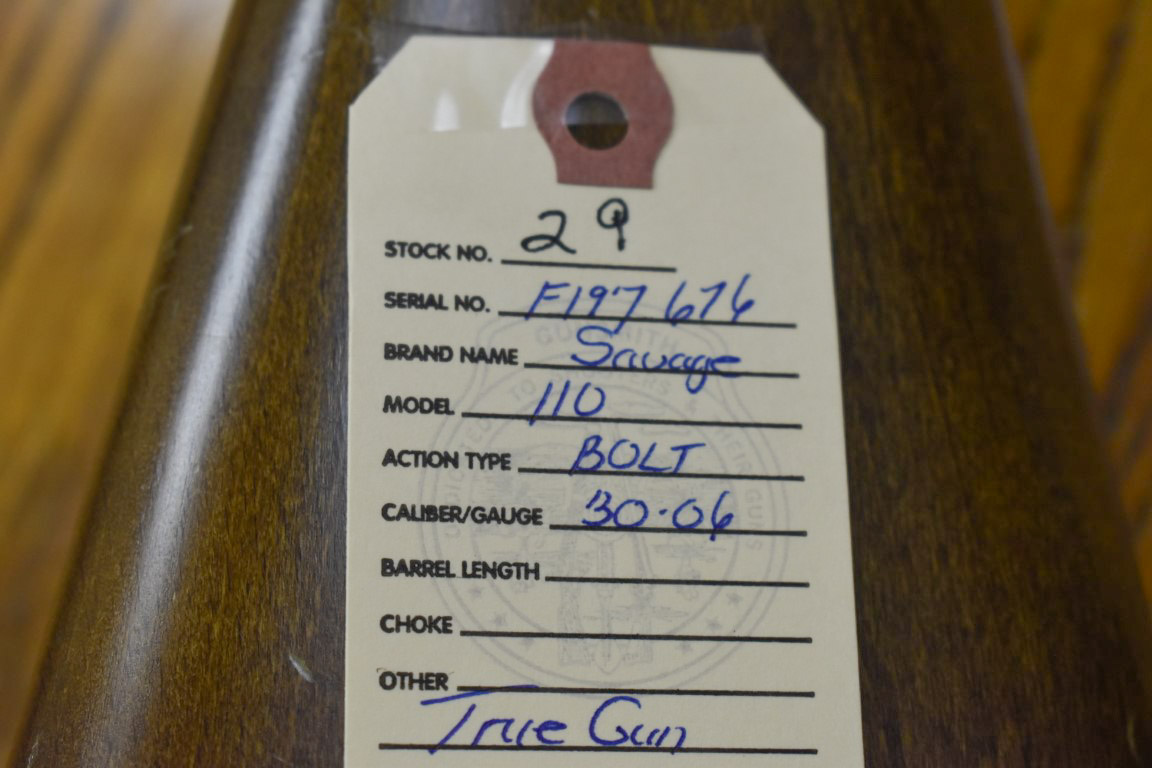 STOCK NO. 29
SERIAL NO. F197676
BRAND NAME Savage
MODEL 110
ACTION TYPE BOLT
CALIBER/GAUGE 30-06
BARREL LENGTH
CHOKE
OTHER
True Gun